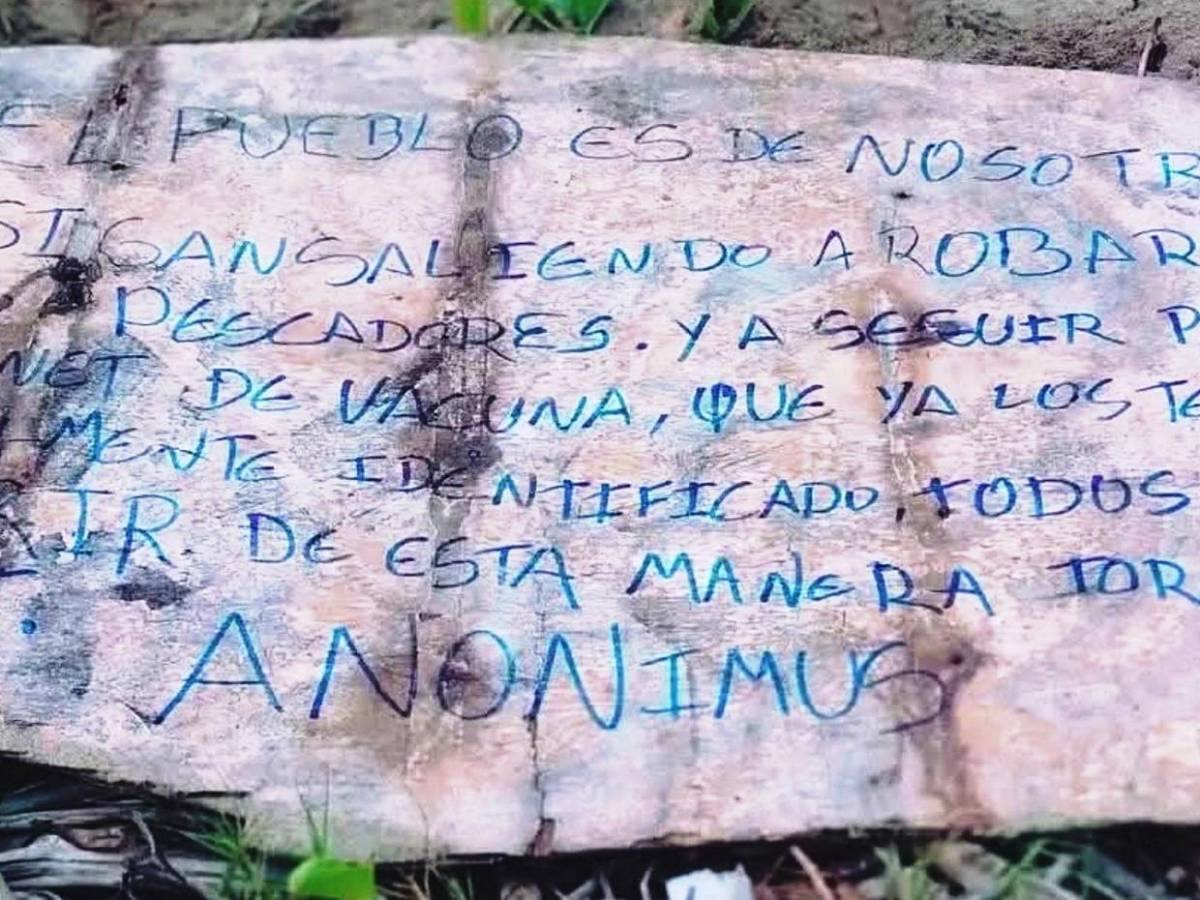 EL PUEBLO ES DE NOSOTR
SIGAN SALIENDO A ROBAR
PESCADORES. Y A SEGUIR P
NET DE VACUNA, QUE YA LOS TE
MENTE IDENTIIFICADO, TODOS
IR. DE ESTA MANERA TOR
ANONIMUS